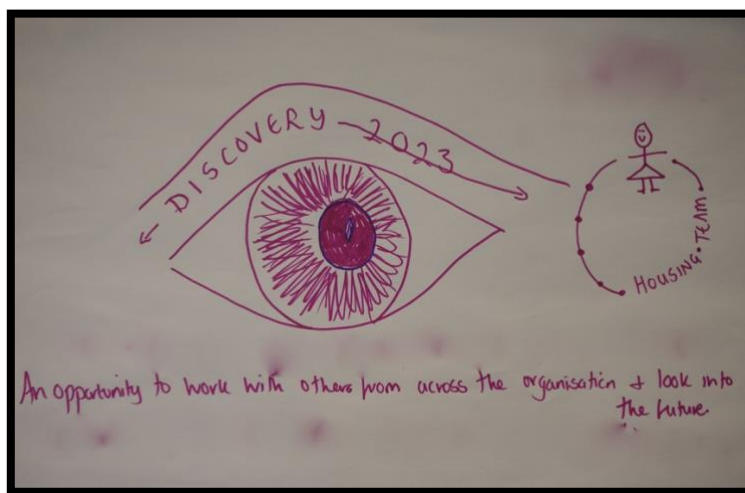 DISCOVERY - 2023
HOUSING • TEAM
An opportunity to work with others from across the organisation & look into
the future.